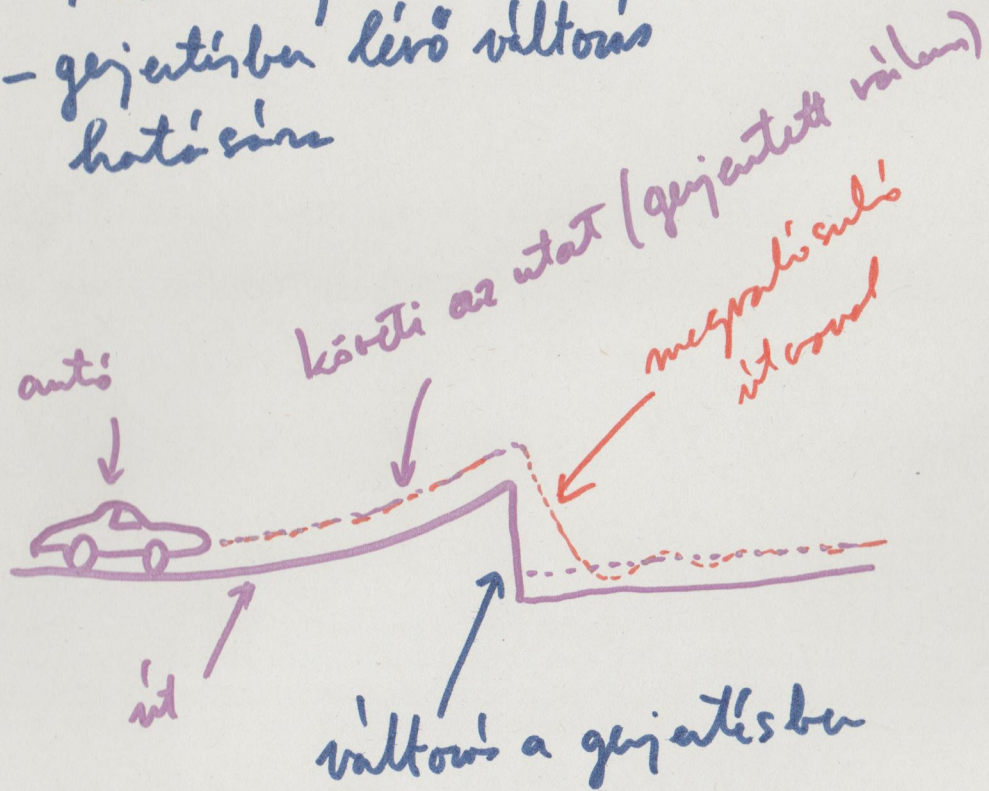 - gerjesztésben lévő változás
hatására
követi az utat (gerjesztett válasz)
megvalósuló
útvonal
autó
út
változás a gerjesztésben